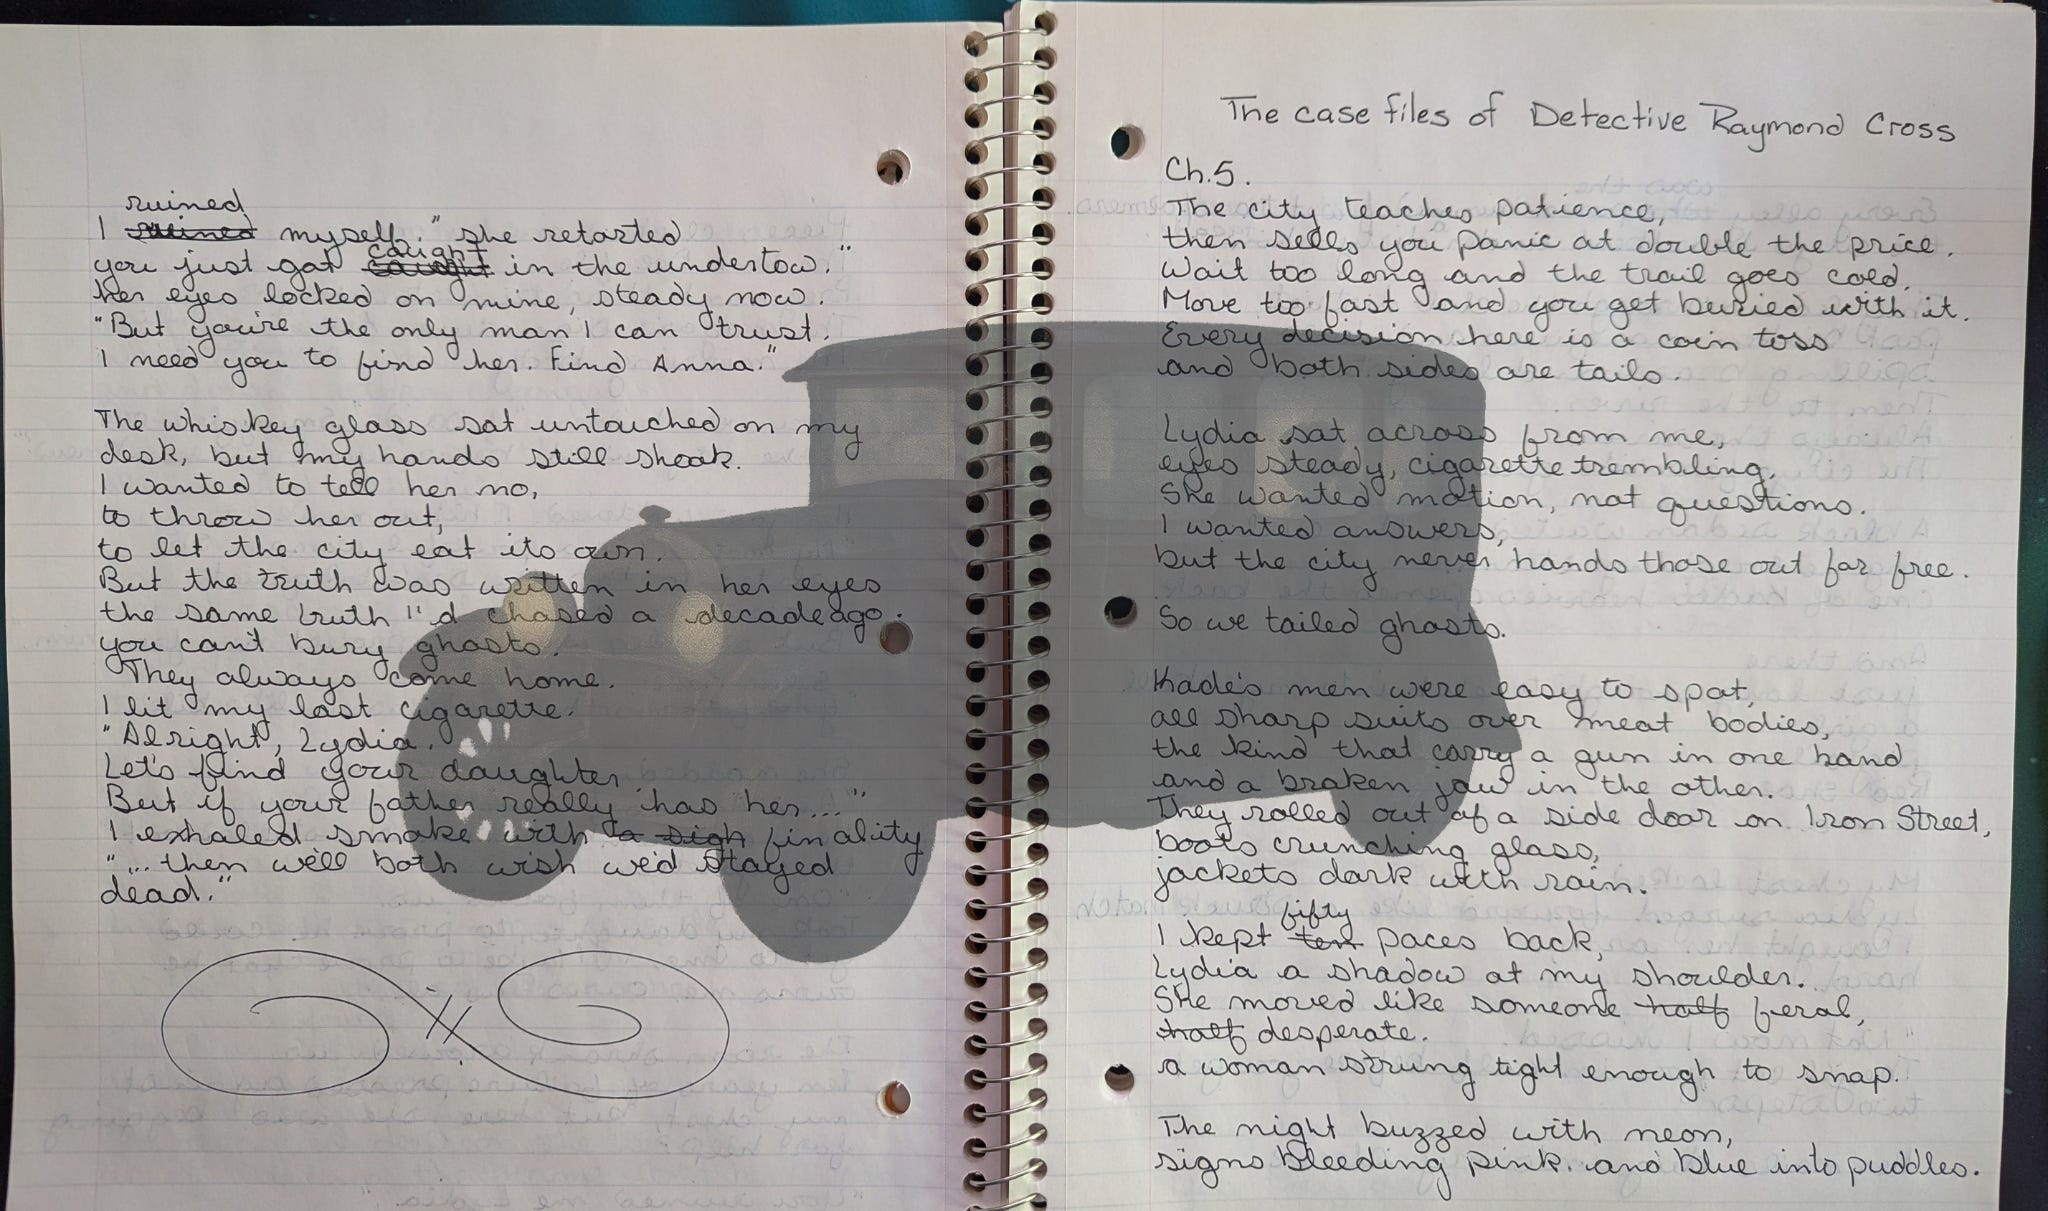 ruined
I ruined myself." she retorted
caught
you just got caught in the undertow."
her eyes locked on mine, steady now.
"But you're the only man I can trust.
I need you to find her. Find Anna."
The whiskey glass sat untouched on my
desk, but my hands still shook.
I wanted to tell her no,
to throw her out,
to let the city eat its own.
But the truth was written in her eyes
the same truth I'd chased a decade ago.
you can't bury ghosts.
They always come home.
I lit my last cigarette.
"Alright", Lydia.
Let's find your daughter
But if your father really has her..."
I exhaled smoke with a sigh finality
"... then we'll both wish we'd stayed
dead."
The case files of Detective Raymond Cross
Ch.5.
The city teaches patience,
then sells you panic at double the price.
Wait too long and the trail goes cold.
Move too fast and you get buried with it.
Every decision here is a coin toss
and both sides are tails.
Lydia sat across from me,
eyes steady, cigarette trembling.
She wanted motion, not questions.
I wanted answers,
but the city never hands those out for free.
So we tailed ghosts.
Kade's men were easy to spot,
all sharp suits over meat bodies,
the kind that carry a gun in one hand
and a broken jaw in the other.
They rolled out of a side door on Iron Street,
boots crunching glass,
jackets dark with rain.
fifty
I kept ten paces back,
Lydia a shadow at my shoulder.
She moved like someone half feral,
half desperate.
a woman strung tight enough to snap.
The night buzzed with neon,
signs bleeding pink and blue into puddles.